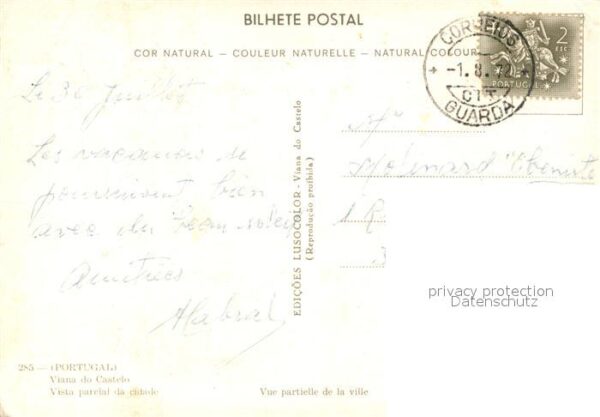 BILHETE POSTAL
COR NATURAL – COULEUR NATURELLE – NATURAL COLOUR
CORREIOS
-1. 8. 72
CTT
GUARDA
2
ESC
PORTUGAL
Le 30 Juillet
Les vacances se
poursuivent bien
avec du beau soleil
Amitiées
ACabral
EDIÇÕES LUSOCOLOR - Viana do Castelo
(Reprodução proibida)
Mr
Molinard
1 R
3
privacy protection
Datenschutz
285 — (PORTUGAL)
Viana do Castelo
Vista parcial da cidade
Vue partielle de la ville